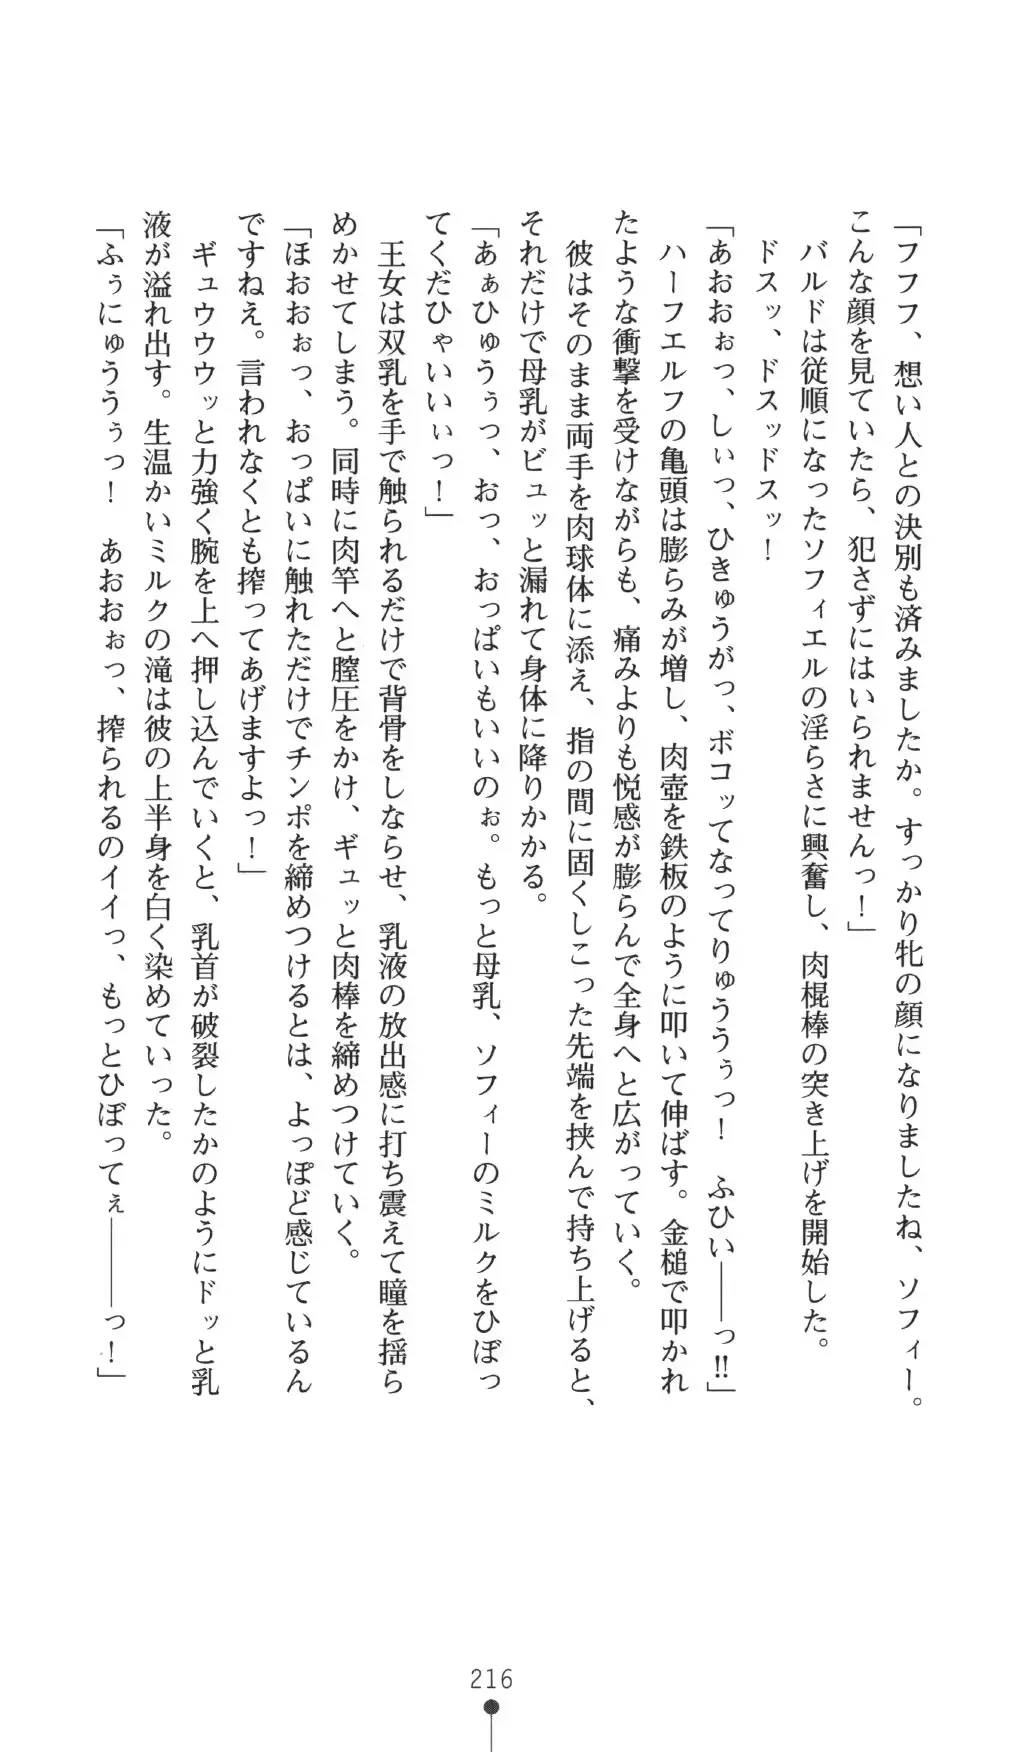 「フフフ、想い人との決別も済みましたか。すっかり牝の顔になりましたね、ソフィー。
こんな顔を見ていたら、犯さずにはいられませんっ！」
　バルドは従順になったソフィエルの淫らさに興奮し、肉棍棒の突き上げを開始した。
　ドスッ、ドスッドスッ！
「あおおぉっ、しぃっ、ひきゅうがっ、ボコッてなってりゅううぅっ！　ふひい――っ!!」
　ハーフエルフの亀頭は膨らみが増し、肉壺を鉄板のように叩いて伸ばす。金槌で叩かれ
たような衝撃を受けながらも、痛みよりも悦感が膨らんで全身へと広がっていく。
　彼はそのまま両手を肉球体に添え、指の間に固くしこった先端を挟んで持ち上げると、
それだけで母乳がビュッと漏れて身体に降りかかる。
「あぁひゅうぅっ、おっ、おっぱいもいいのぉ。もっと母乳、ソフィーのミルクをひぼっ
てくだひゃいいぃっ！」
　王女は双乳を手で触られるだけで背骨をしならせ、乳液の放出感に打ち震えて瞳を揺ら
めかせてしまう。同時に肉竿へと膣圧をかけ、ギュッと肉棒を締めつけていく。
「ほおおぉっ、おっぱいに触れただけでチンポを締めつけるとは、よっぽど感じているん
ですねえ。言われなくとも搾ってあげますよっ！」
　ギュウウウッと力強く腕を上へ押し込んでいくと、乳首が破裂したかのようにドッと乳
液が溢れ出す。生温かいミルクの滝は彼の上半身を白く染めていった。
「ふぅにゅううぅっ！　あおおぉっ、搾られるのイイっ、もっとひぼってぇ――――っ！」
216